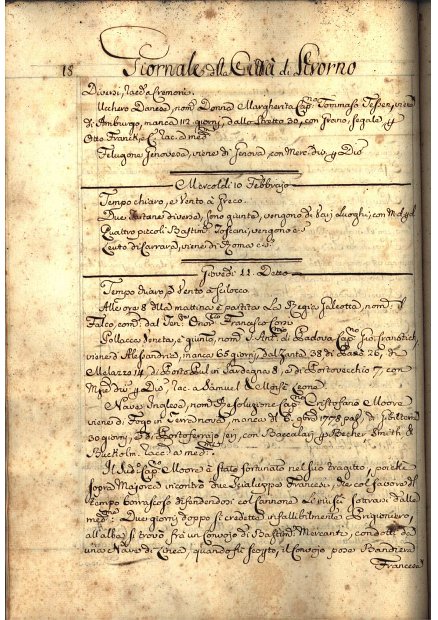 18 Giornale della Città di Livorno
Diversi, racc.a Cremoni.
Ucchero Danese, nom.o Donna Margherita Cap.no Tommaso Tessen, viene
di Amburgo, manca 112 giorni, dallo Stretto 30, con Grano, segale, p
Otto Franck, e C. rac. a med.mi
Felugone Genovese, viene di Genova con Merc. div. p Div.
Mercoldi 10 Febbrajo
Tempo chiaro, e Vento à Greco.
Due tartane diverse, sono giunte, vengono di varj luoghi; con
Quattro piccoli Bastim. Toscani, vengono
Leuto di Carrara, viene di Roma
Giovedi 11 Detto
Tempo chiaro, e Vento a Scilocco
Alle ore 8 della mattina è partita La Regia Galeotta, nom. il
Falco, com. dal Ten. Onor. Francesco
Pollacca Veneta, è giunta, nom. S. Ant. di Padova Cap.no Gio:
viene d'Alessandria, manca 65 giorni, dal Zante 38, di 26, da
Melazzo 14 di in Sardegna 8, e di Portovecchio 7, con
Mer. div. p Div. rac. a Samuel & Moisè Leone
Nave Inglese, nom. Resoluzione Cap.no Cristofano Moore
viene di Fogo in Terranova, manca dl 6. 9bre 1778 pas. di Gibilterra
30 giorni, e di Portoferrajo jeri, con Baccalari p Becher Smith &
racc. a med.mi
Il Sud. Cap.no Moore è stato fortunato nel suo tragitto, poiche
sopra Majorca incontrò due Scialuppe Francesi, che col favore del
tempo borrascoso difendendosi col Cannone Li riuscì sotrarsi dalle
med.me: Due giorni doppo si credette infallibilmente Prigioniero,
all'alba si trovò frà un Convojo di Bastim. Mercant. condotti da
una Nave di Linea, quando fù scoperto, il Convojo pose Bandiera
Francese